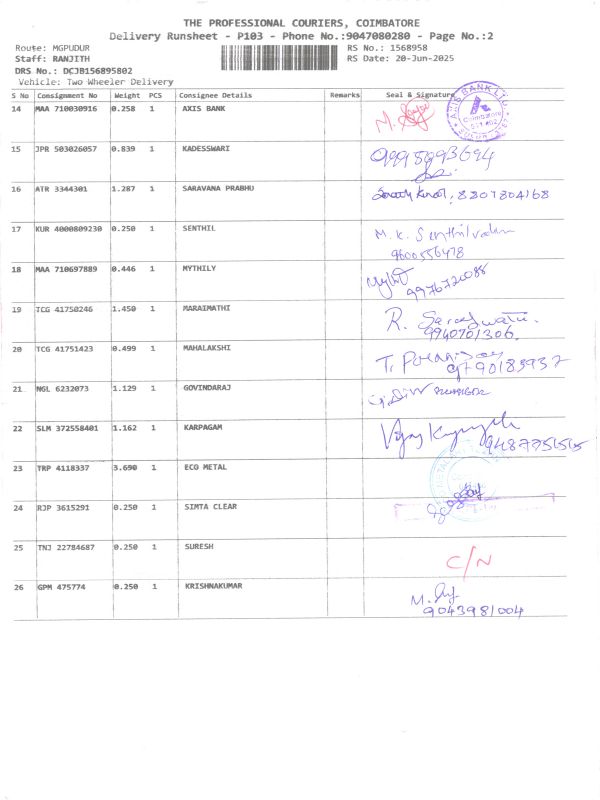 THE PROFESSIONAL COURIERS, COIMBATORE
Delivery Runsheet - P103 - Phone No.:9047080280 - Page No.:2
Route: MGPUDUR RS No.: 1568958
Staff: RANJITH RS Date: 20-Jun-2025
DRS No.: DCJB156895802
Vehicle: Two Wheeler Delivery
S No Consignment No Weight PCS Consignee Details Remarks Seal & Signature
14 MAA 710030916 0.258 1 AXIS BANK AXIS BANK LTD.
15 JPR 503026057 0.839 1 KADESSWARI
16 ATR 3344301 1.287 1 SARAVANA PRABHU 8807804168
17 KUR 4000809230 0.250 1 SENTHIL M.K. Senthilvadan
9600556478
18 MAA 710697889 0.446 1 MYTHILY
9976720088
19 TCG 41750246 1.450 1 MARAIMATHI R. Saraswati.
9940701306.
20 TCG 41751423 0.499 1 MAHALAKSHI
21 NGL 6232073 1.129 1 GOVINDARAJ
22 SLM 372558401 1.162 1 KARPAGAM
23 TRP 4118337 3.690 1 ECO METAL
24 RJP 3615291 0.250 1 SIMTA CLEAR
25 TNJ 22784687 0.250 1 SURESH C/N
26 GPM 475774 0.250 1 KRISHNAKUMAR
9043981004